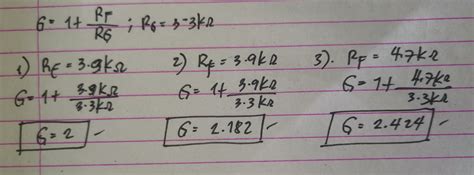 G = 1 + RF/RG ; RG = 3.3kΩ
1) RF = 3.9kΩ
G = 1 + 3.9kΩ/3.3kΩ
G = 2
2) RF = 3.9kΩ
G = 1 + 3.9kΩ/3.3kΩ
G = 2.182
3). RF = 4.7kΩ
G = 1 + 4.7kΩ/3.3kΩ
G = 2.424